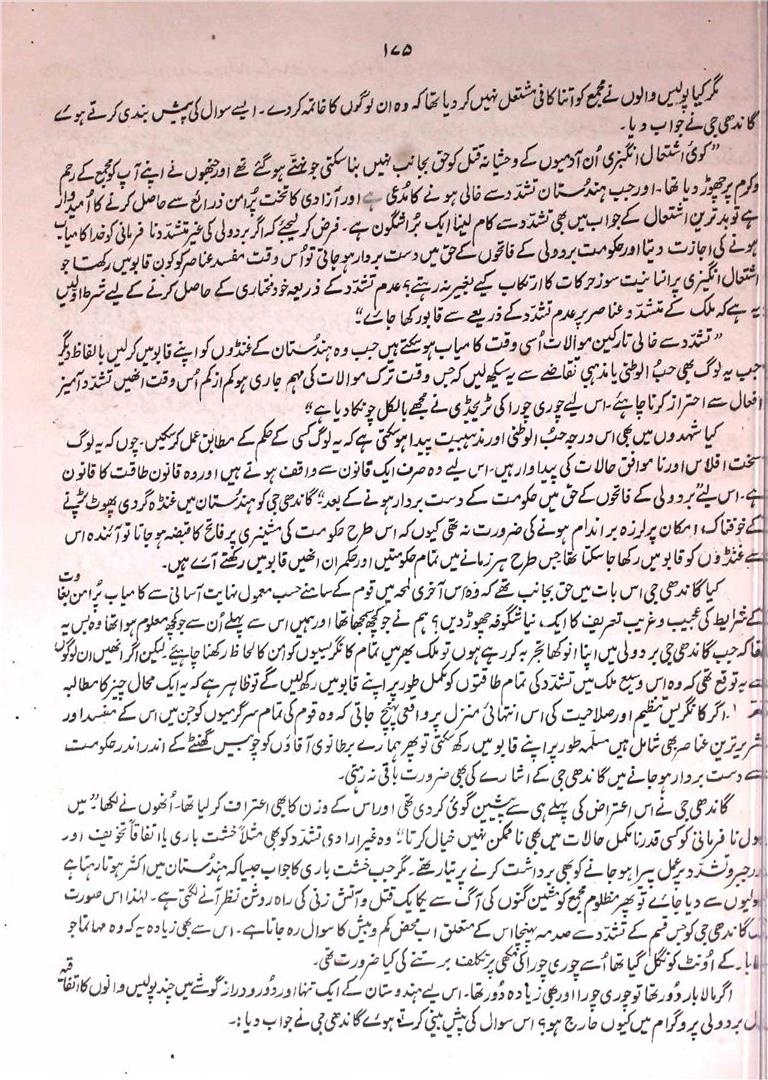 ۱۷۵
مگر کیا پولیس والوں نے مجمع کو اتنا کافی مشتعل نہیں کر دیا تھا کہ وہ ان لوگوں کا خاتمہ کر دے۔ ایسے سوال کی پیش بندی کرتے ہوے
گاندھی جی نے جواب دیا۔
”کوئی اشتعال انگیزی اُن آدمیوں کے وحشیانہ قتل کو حق بجانب نہیں بنا سکتی جو نہتے ہو گئے تھے اور جنھوں نے اپنے آپ کو مجمع کے رحم
وکرم پر چھوڑ دیا تھا۔ اور جب ہندستان تشدد سے خالی ہونے کا مدعی ہے اور آزادی کا تخت پُرامن ذرائع سے حاصل کرنے کا اُمیدوار
ہے تو بدترین اشتعال کے جواب میں بھی تشدد سے کام لینا ایک بُرا شگون ہے۔ فرض کر لیجئے کہ اگر بردولی کی غیر متشدد نا فرمانی کو خدا کامیاب
ہونے کی اجازت دیتا اور حکومت بردولی کے فاتحوں کے حق میں دست بردار ہو جاتی تو اُس وقت مفسد عناصر کو کون قابو میں رکھتا جو
اشتعال انگیزی پر انسانیت سوز حرکات کا ارتکاب کیے بغیر نہ رہتے؟ عدم تشدد کے ذریعہ خود مختاری کے حاصل کرنے کے لیے شرط اولیں
یہ ہے کہ ملک کے متشدد عناصر پر عدم تشدد کے ذریعے سے قابو رکھا جائے“
”تشدد سے خالی تارکین موالات اُسی وقت کامیاب ہو سکتے ہیں جب وہ ہندُستان کے غنڈوں کو اپنے قابو میں کر لیں بالفاظ دیگر
جب یہ لوگ بھی حبُ الوطنی یا مذہبی تقاضے سے یہ سیکھ لیں کہ جس وقت ترک موالات کی مہم جاری ہو کم از کم اُس وقت انھیں تشدد آمیز
افعال سے احتراز کرنا چاہئے۔ اس لیے چوری چورا کی ٹریجڈی نے مجھے بالکل چونکا دیا ہے“
کیا شہدوں میں بھی اس درجہ حب الوطنی اور مذہبیت پیدا ہو سکتی ہے کہ یہ لوگ کسی کے حکم کے مطابق عمل کر سکیں۔ چوں کہ یہ لوگ
سخت افلاس اور نا موافق حالات کی پیداوار ہیں۔ اس لیے وہ صرف ایک قانون سے واقف ہوتے ہیں اور وہ قانون طاقت کا قانون
ہے۔ اس لیے ”بردولی کے فاتحوں کے حق میں حکومت کے دست بردار ہونے کے بعد“ گاندھی جی کو ہندُستان میں غنڈہ گردی پھوٹ پڑنے
کے خوفناک امکان پر لرزہ براندام ہونے کی ضرورت نہ تھی کیوں کہ اس طرح حکومت کی مشینری پر فاتح کا قبضہ ہو جاتا تو آئندہ اس
سے غنڈوں کو قابو میں رکھا جا سکتا تھا جس طرح ہر زمانے میں تمام حکومتیں اور حکمران انھیں قابو میں رکھتے آئے ہیں۔
کیا گاندھی جی اس بات میں حق بجانب تھے کہ وہ اس آخری لمحہ میں قوم کے سامنے حسب معمول نہایت آسانی سے کامیاب پُرامن بغاوت
کے شرایط کی عجیب و غریب تعریف کا ایک نیا شگوفہ چھوڑ دیں؟ ہم نے جو کچھ سمجھا تھا اور ہمیں اس سے پہلے اُن سے جو کچھ معلوم ہوا تھا وہ بس یہ
تھا کہ جب گاندھی جی بردولی میں اپنا انوکھا تجربہ کر رہے ہوں تو ملک بھر میں تمام کانگرسیوں کو امن کا لحاظ رکھنا چاہئے۔ لیکن اگر انھیں ان لوگوں
سے یہ توقع تھی کہ وہ اس وسیع ملک میں تشدد کی تمام طاقتوں کو مکمل طور پر اپنے قابو میں رکھ لیں گے تو ظاہر ہے کہ یہ ایک محال چیز کا مطالبہ
تھا۔ اگر کانگریس تنظیم اور صلاحیت کی اس انتہائی منزل پر واقعی پہنچ جاتی کہ وہ قوم کی تمام سرگرمیوں کو جن میں اس کے مفسد اور
شریر ترین عناصر بھی شامل ہیں مسلمہ طور پر اپنے قابو میں رکھ سکتی تو پھر ہمارے برطانوی آقاؤں کو چوبیس گھنٹے کے اندر اندر حکومت
سے دست بردار ہو جانے میں گاندھی جی کے اشارے کی بھی ضرورت باقی نہ رہتی۔
گاندھی جی نے اس اعتراض کی پہلے ہی سے پیشین گوئی کر دی تھی اور اس کے وزن کا بھی اعتراف کر لیا تھا۔ اُنھوں نے لکھا ”میں
سول نا فرمانی کو کسی قدر نا مکمل حالات میں بھی نا ممکن نہیں خیال کرتا“ وہ غیر ارادی تشدد کو بھی مثلاً خشت باری یا اتفاقاً تخویف اور
جبر و تشدد پر عمل پیرا ہو جانے کو بھی برداشت کرنے پر تیار تھے۔ مگر جب خشت باری کا جواب جیسا کہ ہندُستان میں اکثر ہوتا رہتا ہے
گولیوں سے دیا جائے تو پھر مظلوم مجمع کو مشین گنوں کی آگ سے یکایک قتل و آتش زنی کی راہ روشن نظر آنے لگتی ہے۔ لہٰذا اس صورت
گاندھی جی کو جس قسم کے تشدد سے صدمہ پہنچا اس کے متعلق اب محض کم و بیش کا سوال رہ جاتا ہے۔ اس سے بھی زیادہ یہ کہ وہ مہاتما جو
کے اُونٹ کو نگل گیا تھا اُسے چوری چورا کی مکھی پر تکلف برتنے کی کیا ضرورت تھی۔
اگر مالا بار دُور تھا تو چوری چورا اور بھی زیادہ دُور تھا۔ اس لیے ہندوستان کے ایک تنہا اور دُور و دراز گوشے میں چند پولیس والوں کا اتفاقیہ
بردولی پروگرام میں کیوں حارج ہو؟ اس سوال کی پیش بینی کرتے ہوے گاندھی جی نے جواب دیا:۔